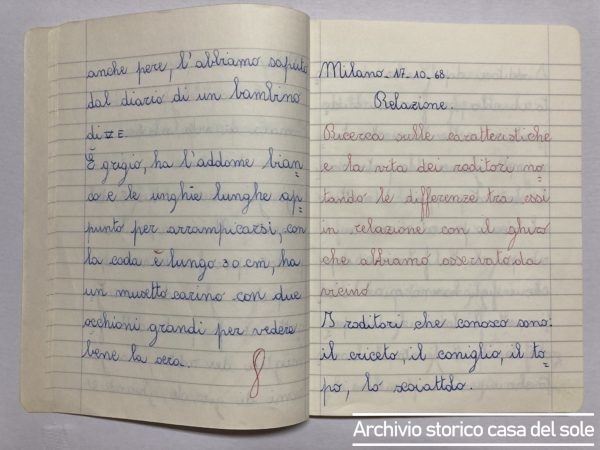 anche pere, l'abbiamo saputo
dal diario di un bambino
di V E.
È grigio, ha l'addome bian=
co e le unghie lunghe ap=
punto per arrampicarsi, con
la coda è lungo 30 cm, ha
un musetto carino con due
occhioni grandi per vedere
bene la sera.
8
Milano. 17-10-68.
Relazione.
Ricerca sulle caratteristiche
e la vita dei roditori no=
tando le differenze tra essi
in relazione con il ghiro
che abbiamo osservato da
vicino
I roditori che conosco sono:
il criceto, il coniglio, il to=
po, lo scoiattolo.
Archivio storico casa del sole